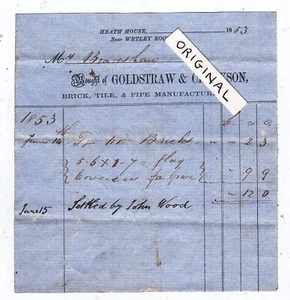 HEATH HOUSE, 1853
Near WETLEY ROC
Mr Bradshaw
ORIGINAL
Bought of GOLDSTRAW & C SON,
BRICK, TILE, & PIPE MANUFACTUR
£ s d
1853
June 14 To Bricks 2 3
5-6 x 3-7 = flag
Coverser for Grave 9 9
12 0
June 15 Settled by John Wood